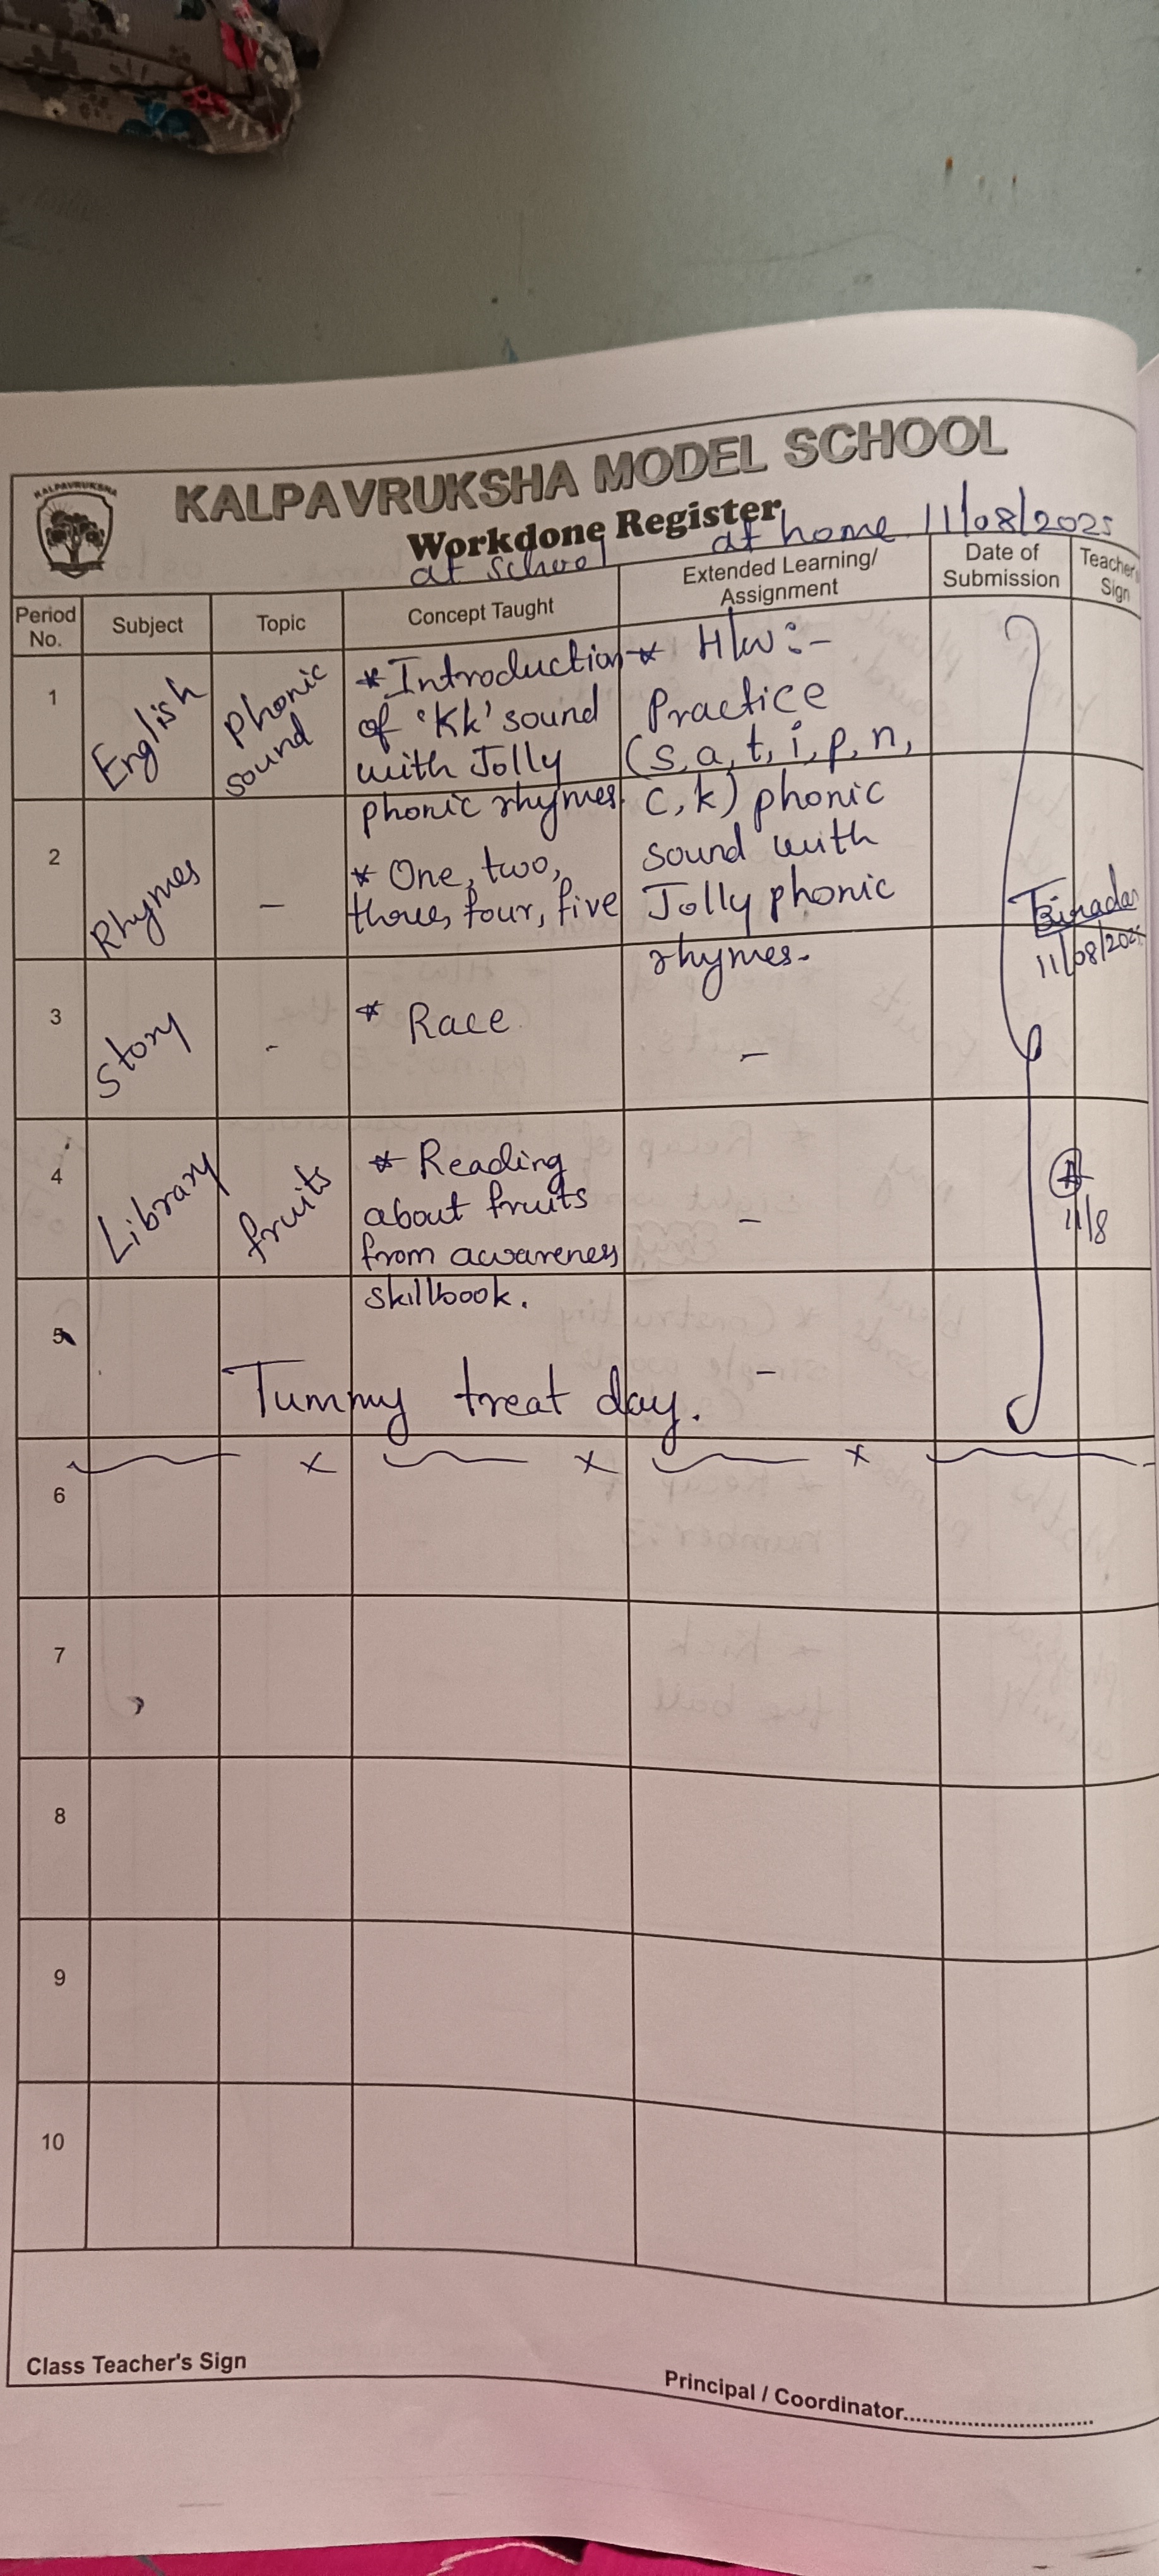 KALPAVRUKSHA
KALPAVRUKSHA MODEL SCHOOL
Workdone Register
at school
at home 11/08/2025
Period No.
Subject
Topic
Concept Taught
Extended Learning/
Assignment
Date of
Submission
Teacher's
Sign
1
English
Phonic
sound
* Introduction
of 'Kk' sound
with Jolly
phonic rhymes.
* H/w :-
Practice
(s, a, t, i, p, n,
c, k) phonic
sound with
Jolly phonic
rhymes.
2
Rhymes
-
* One, two,
three, four, five
11/08/2025
3
Story
-
* Race
-
4
Library
fruits
* Reading
about fruits
from awareness
skillbook.
-
11/8
5
Tummy treat day.
-
6
7
8
9
10
Class Teacher's Sign
Principal / Coordinator..............................